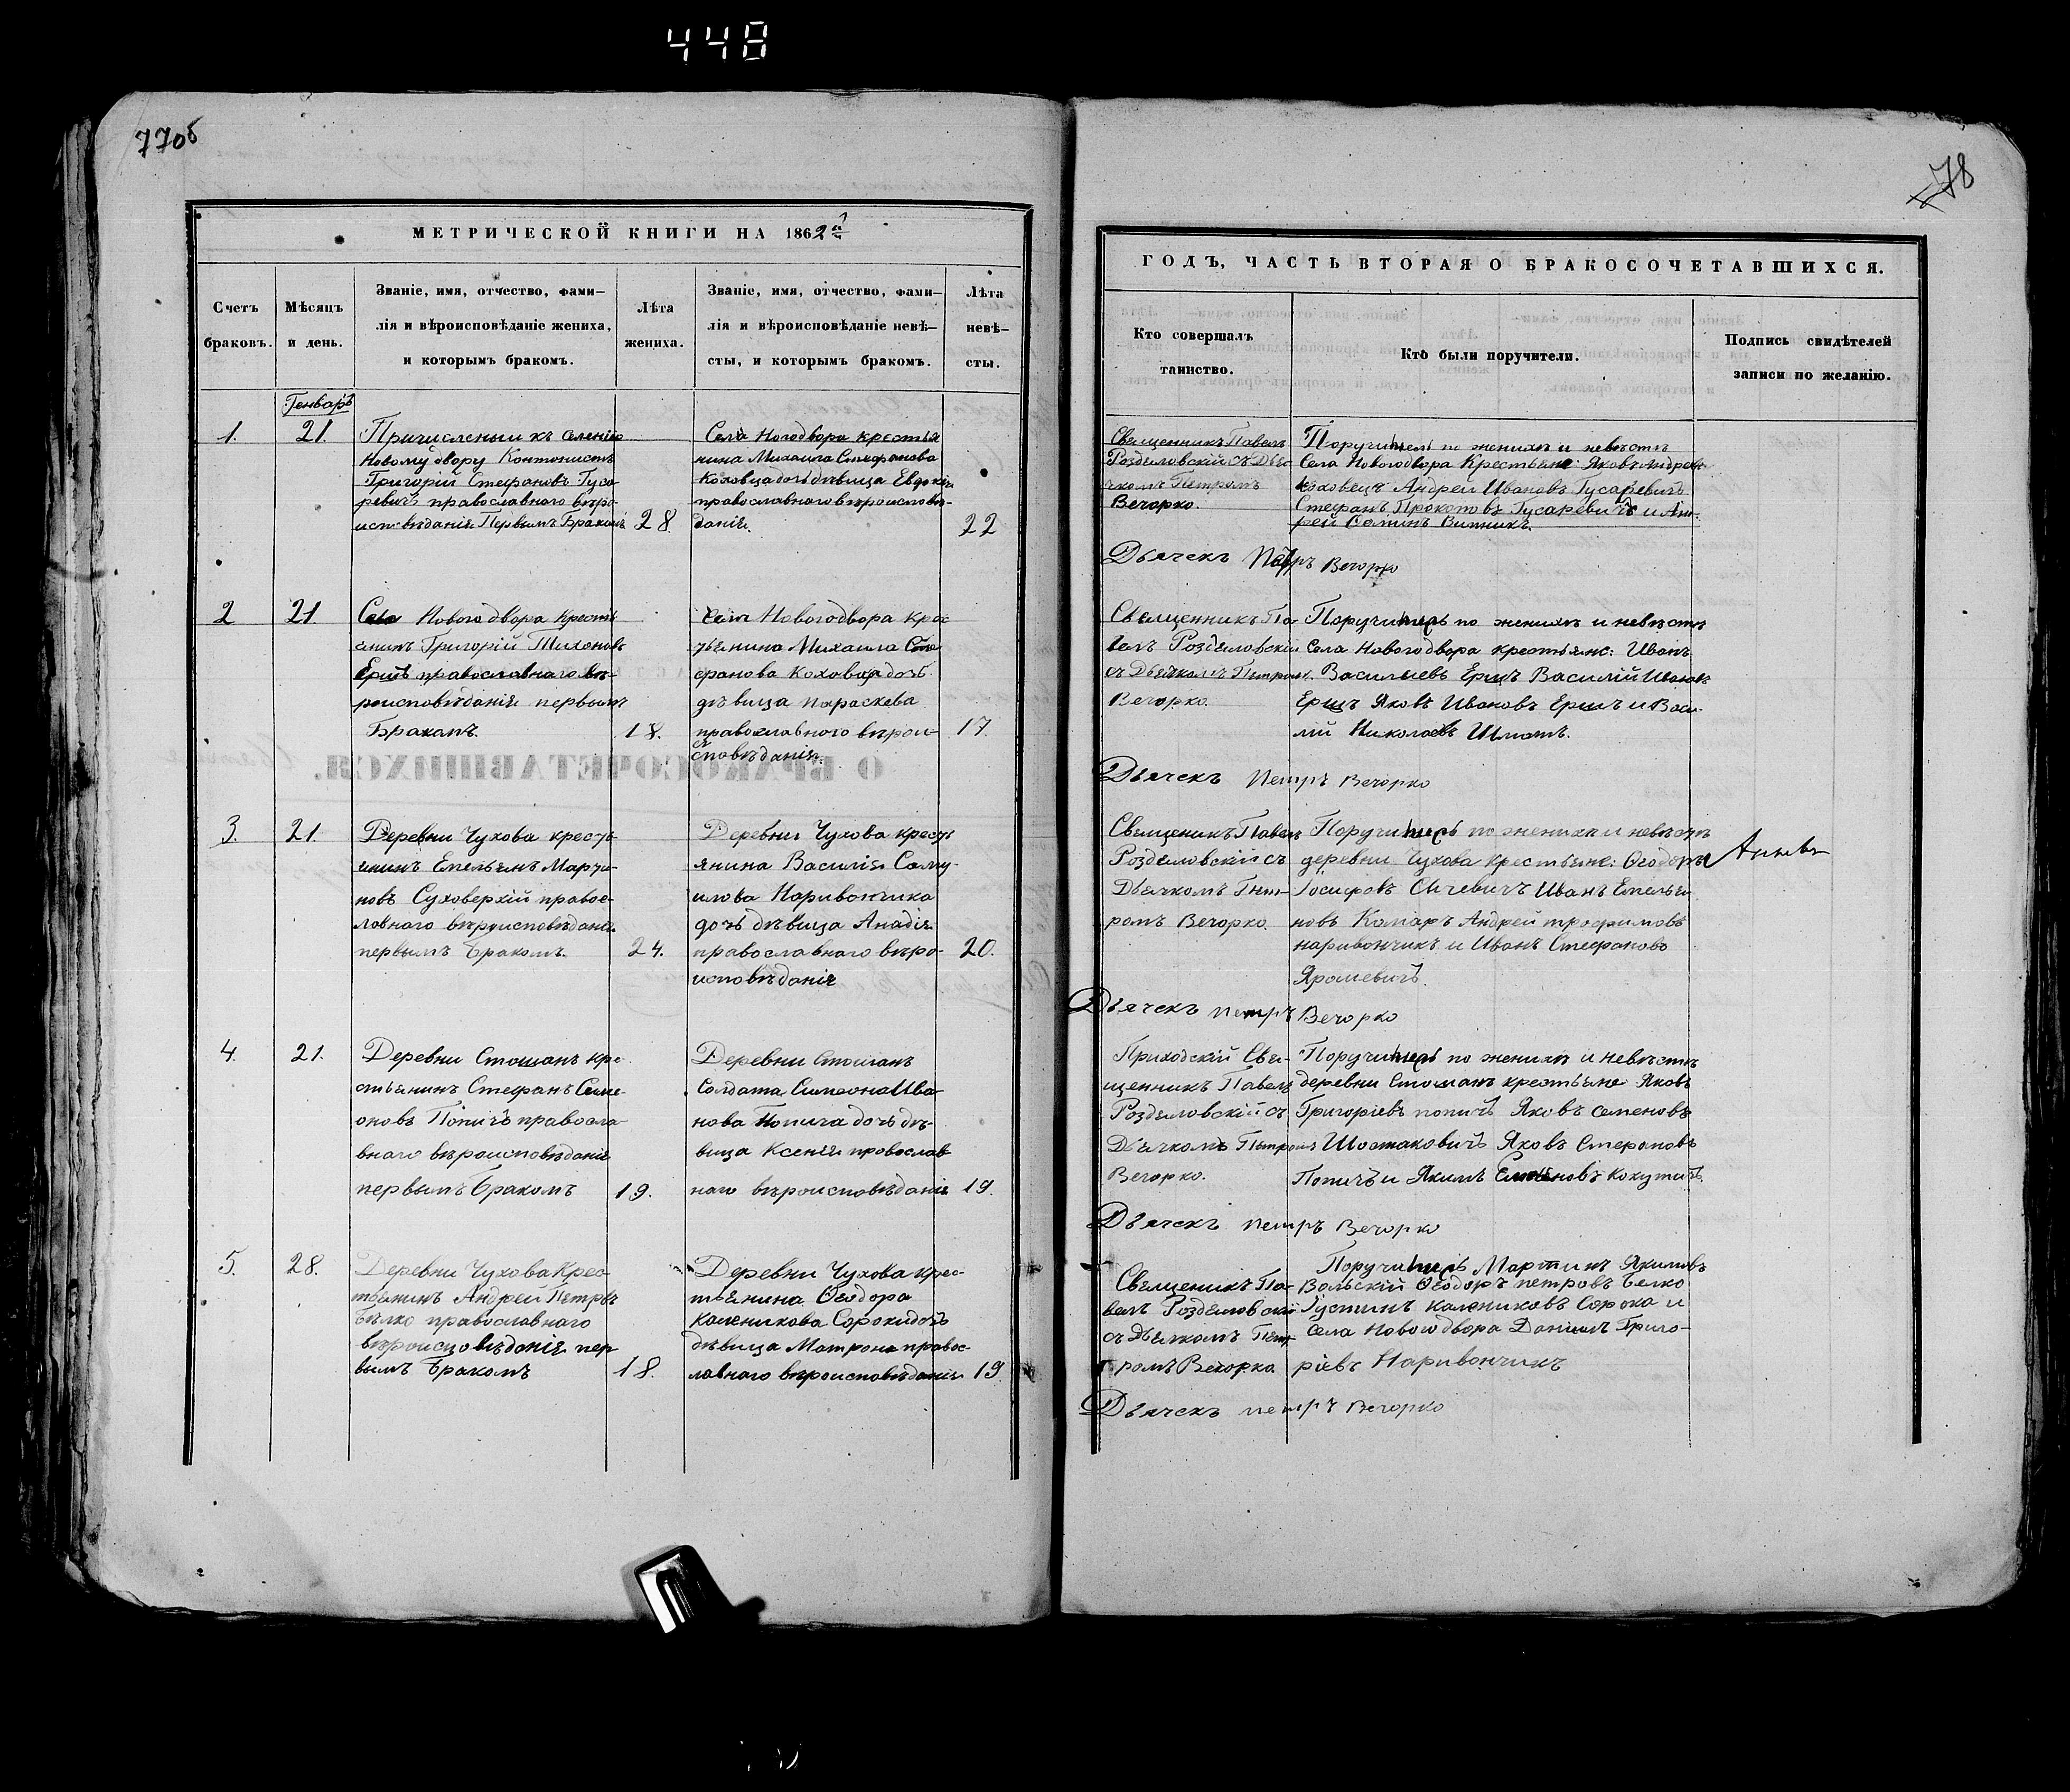 448
77об
78
МЕТРИЧЕСКОЙ КНИГИ НА 1862й
Счетъ
браковъ.
Мѣсяцъ
и день.
Званіе, имя, отчество, фами-
лія и вѣроисповѣданіе жениха,
и которымъ бракомъ.
Лѣта
жениха.
Званіе, имя, отчество, фами-
лія и вѣроисповѣданіе невѣ-
сты, и которымъ бракомъ.
Лѣта
невѣ-
сты.
Генварь
1.
21.
Причисленый къ селенію
Новому двору Контонистъ
Григорій Стефановъ Гуса
ревичъ православнаго вѣро
исповѣданія Первымъ Бракомъ
28
Села Новодвора крестья
нина Михаила Стефанова
Коховца дочь дѣвица Евдокія
православнаго вѣроисповѣ-
данія.
22
2
21
Села Новогодвора кресть
янинъ Григорій Тихоновъ
Ершъ православнаго вѣ-
роисповѣданія первымъ
Бракомъ.
18.
Села Новогодвора крес
тьянина Михаила Сте
фанова Коховца дочь
дѣвица параскева
православного вѣрои-
сповѣданія.
17.
3.
21.
Деревни Чухова кресть
янинъ Емельянъ Марти-
новъ Суховерхій правос-
лавнаго вѣроисповѣданія
первымъ бракомъ.
24.
Деревни Чухова кресть
янина Василія Саму-
илова Наривончика
дочь дѣвица Анадія
православнаго вѣро-
исповѣданія
20.
4.
21.
Деревни Стошанъ кре-
стьянинъ Стефанъ Симе-
оновъ Попичъ правосла-
внаго вѣроисповѣданія
первымъ бракомъ
19.
Деревни Стошанъ
Солдата Симеона Ива
нова Попича дочь дѣ-
вица Ксенія православ
наго вѣроисповѣданія
19.
5.
28.
Деревни Чухова Крес
тьянинъ Андрей Петровъ
Бѣлко православнаго
вѣроисповѣданія пер
вымъ бракомъ
18.
Деревни Чухова крес-
тьянина Ѳеодора
Каленикова Сороки дочь
дѣвица Матрона правос-
лавнаго вѣроисповѣданія
19.
ГОДЪ, ЧАСТЬ ВТОРАЯ О БРАКОСОЧЕТАВШИХСЯ.
Кто совершалъ
таинство.
Кто были поручители.
Подпись свидѣтелей
записи по желанію.
Священникъ Павелъ
Роздяловскій съ Дья
чкомъ Петромъ
Вечорко.
Поручители по женихѣ и невѣстѣ
Села Новогодвора Крестьяне: Яковъ Андреев
коховецъ Андрей Ивановъ Гусаревичъ
Стефанъ Прокоповъ Гусаревичъ и Анд-
рей Винникъ.
Дьячекъ Петръ Вечорко
Священникъ Па-
велъ Роздяловскій
съ Дьячкомъ Петромъ
Вечорко.
Поручители по женихѣ и невѣстѣ
Села Новогодвора крестьяне: Иванъ
Васильевъ Ершъ Василій Ивановъ
Ершъ Яковъ Ивановъ Ершъ и Васи-
лій Николаевъ Шматъ.
Дьячекъ Петръ Вечорко
Священикъ Павелъ
Роздяловскій съ
Дьячкомъ Пет-
ромъ Вечорко.
Поручители по женихѣ и невѣстѣ
деревни Чухова крестьяне: Ѳеодоръ
Іосифовъ Сачевичъ Иванъ Емелья
новъ Комаръ Андрей трофимовъ
наривончикъ и Иванъ Стефановъ
Ярошевичъ.
Дьячекъ петръ Вечорко
Приходскій Свя-
щенникъ Павелъ
Роздяловскій съ
Дьячкомъ Петромъ
Вечорко.
Поручители по женихѣ и невѣстѣ
деревни Стошанъ крестьяне Яковъ
Григоріевъ попичъ Яковъ семеновъ
Шостаковичъ Яковъ Стефановъ
Попичъ и Якимъ Семеновъ Кохутичъ.
Дьячекъ петръ Вечорко
Священикъ Па-
велъ Роздяловскій
съ Дьячкомъ Пет-
ромъ Вечорко.
Поручители Мартинъ Якимовъ
Вольскій Ѳеодоръ петровъ Белко
Густинъ калениковъ Сорока и
села Новогодвора Даніилъ Григо-
ріевъ Наривончикъ
Дьячекъ петръ Вечорко